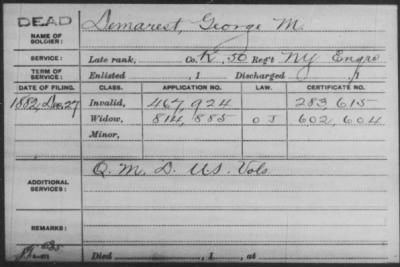 DEAD
NAME OF SOLDIER: Demarest, George M.
SERVICE: Late rank, Co. K, 50 Reg't NY Engrs
TERM OF SERVICE: Enlisted , 1 Discharged , 1
DATE OF FILING. CLASS. APPLICATION NO. LAW. CERTIFICATE NO.
1882, Dec. 27 Invalid, 467,924 283,615
Widow, 814,885 O J 602,604
Minor,
ADDITIONAL SERVICES: Q. M. D. US. Vols
REMARKS:
Died , 1 , at